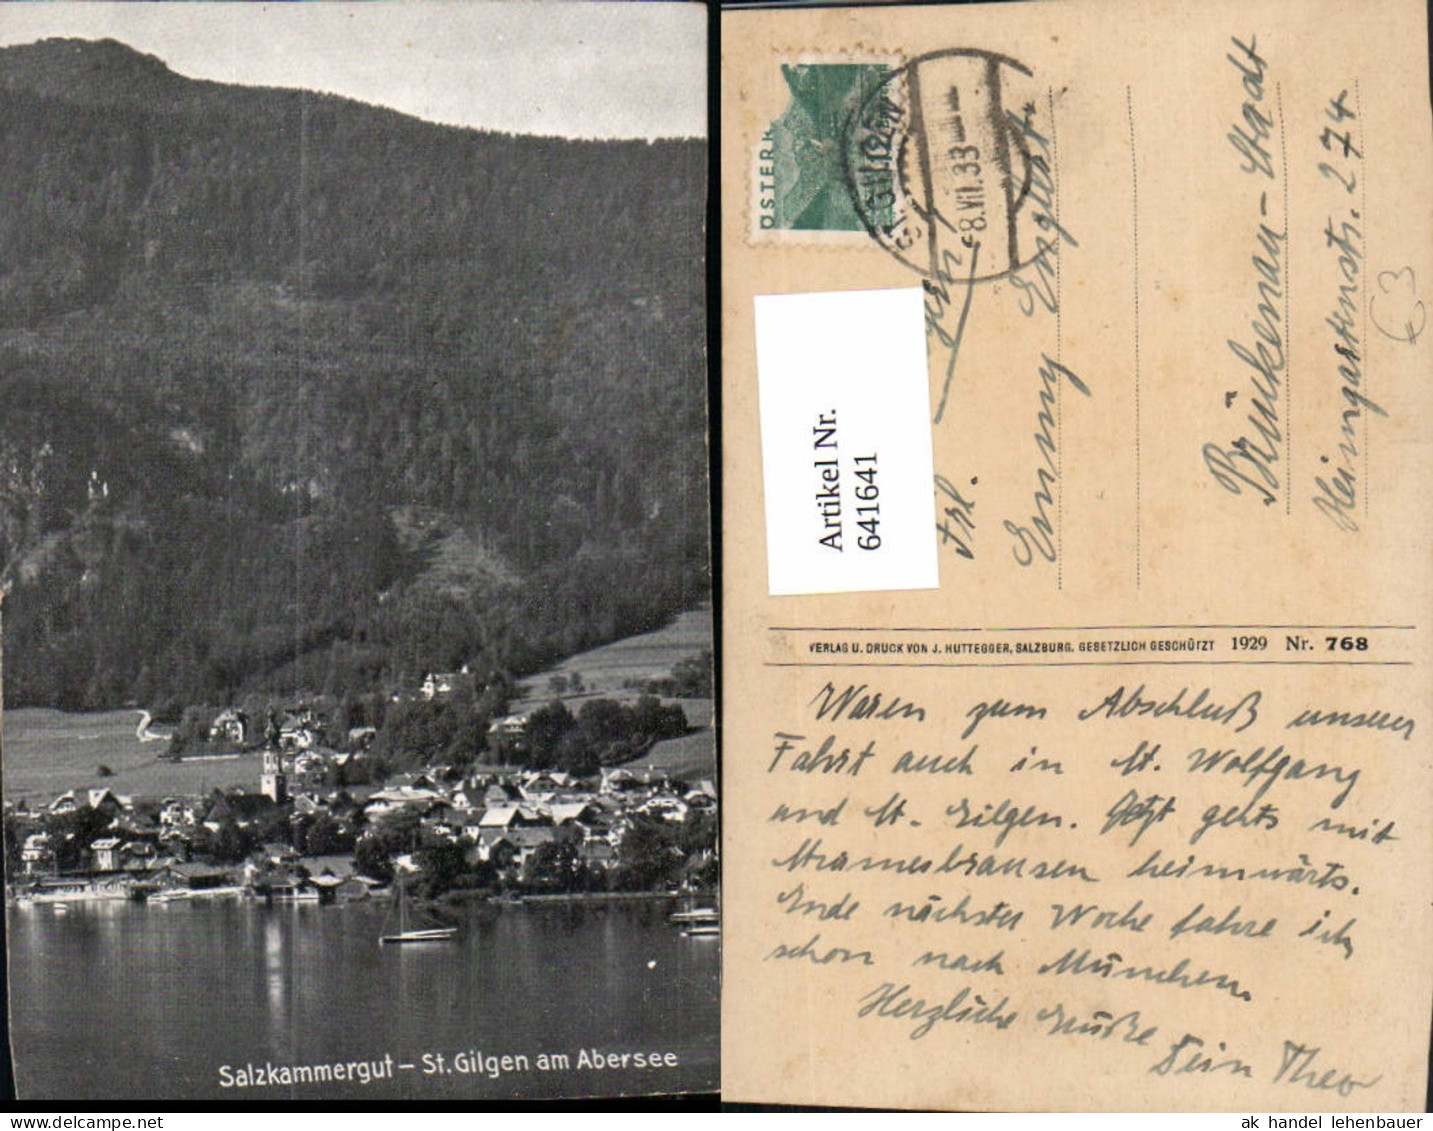 Salzkammergut – St. Gilgen am Abersee
ÖSTERR
ST. GILGEN
8.VII.33
Artikel Nr.
641641
Frl.
Emmy Englert
Brückenau-Stadt
Heimgartenstr. 274
€3
VERLAG U. DRUCK VON J. HUTTEGGER, SALZBURG. GESETZLICH GESCHÜTZT 1929 Nr. 768
Waren zum Abschluß unserer
Fahrt auch in St. Wolfgang
und St. Gilgen. Jetzt gehts mit
heimwärts.
Ende nächster Woche fahre ich
schon nach München.
Herzliche Grüße
Dein Theo
ak handel lehenbauer